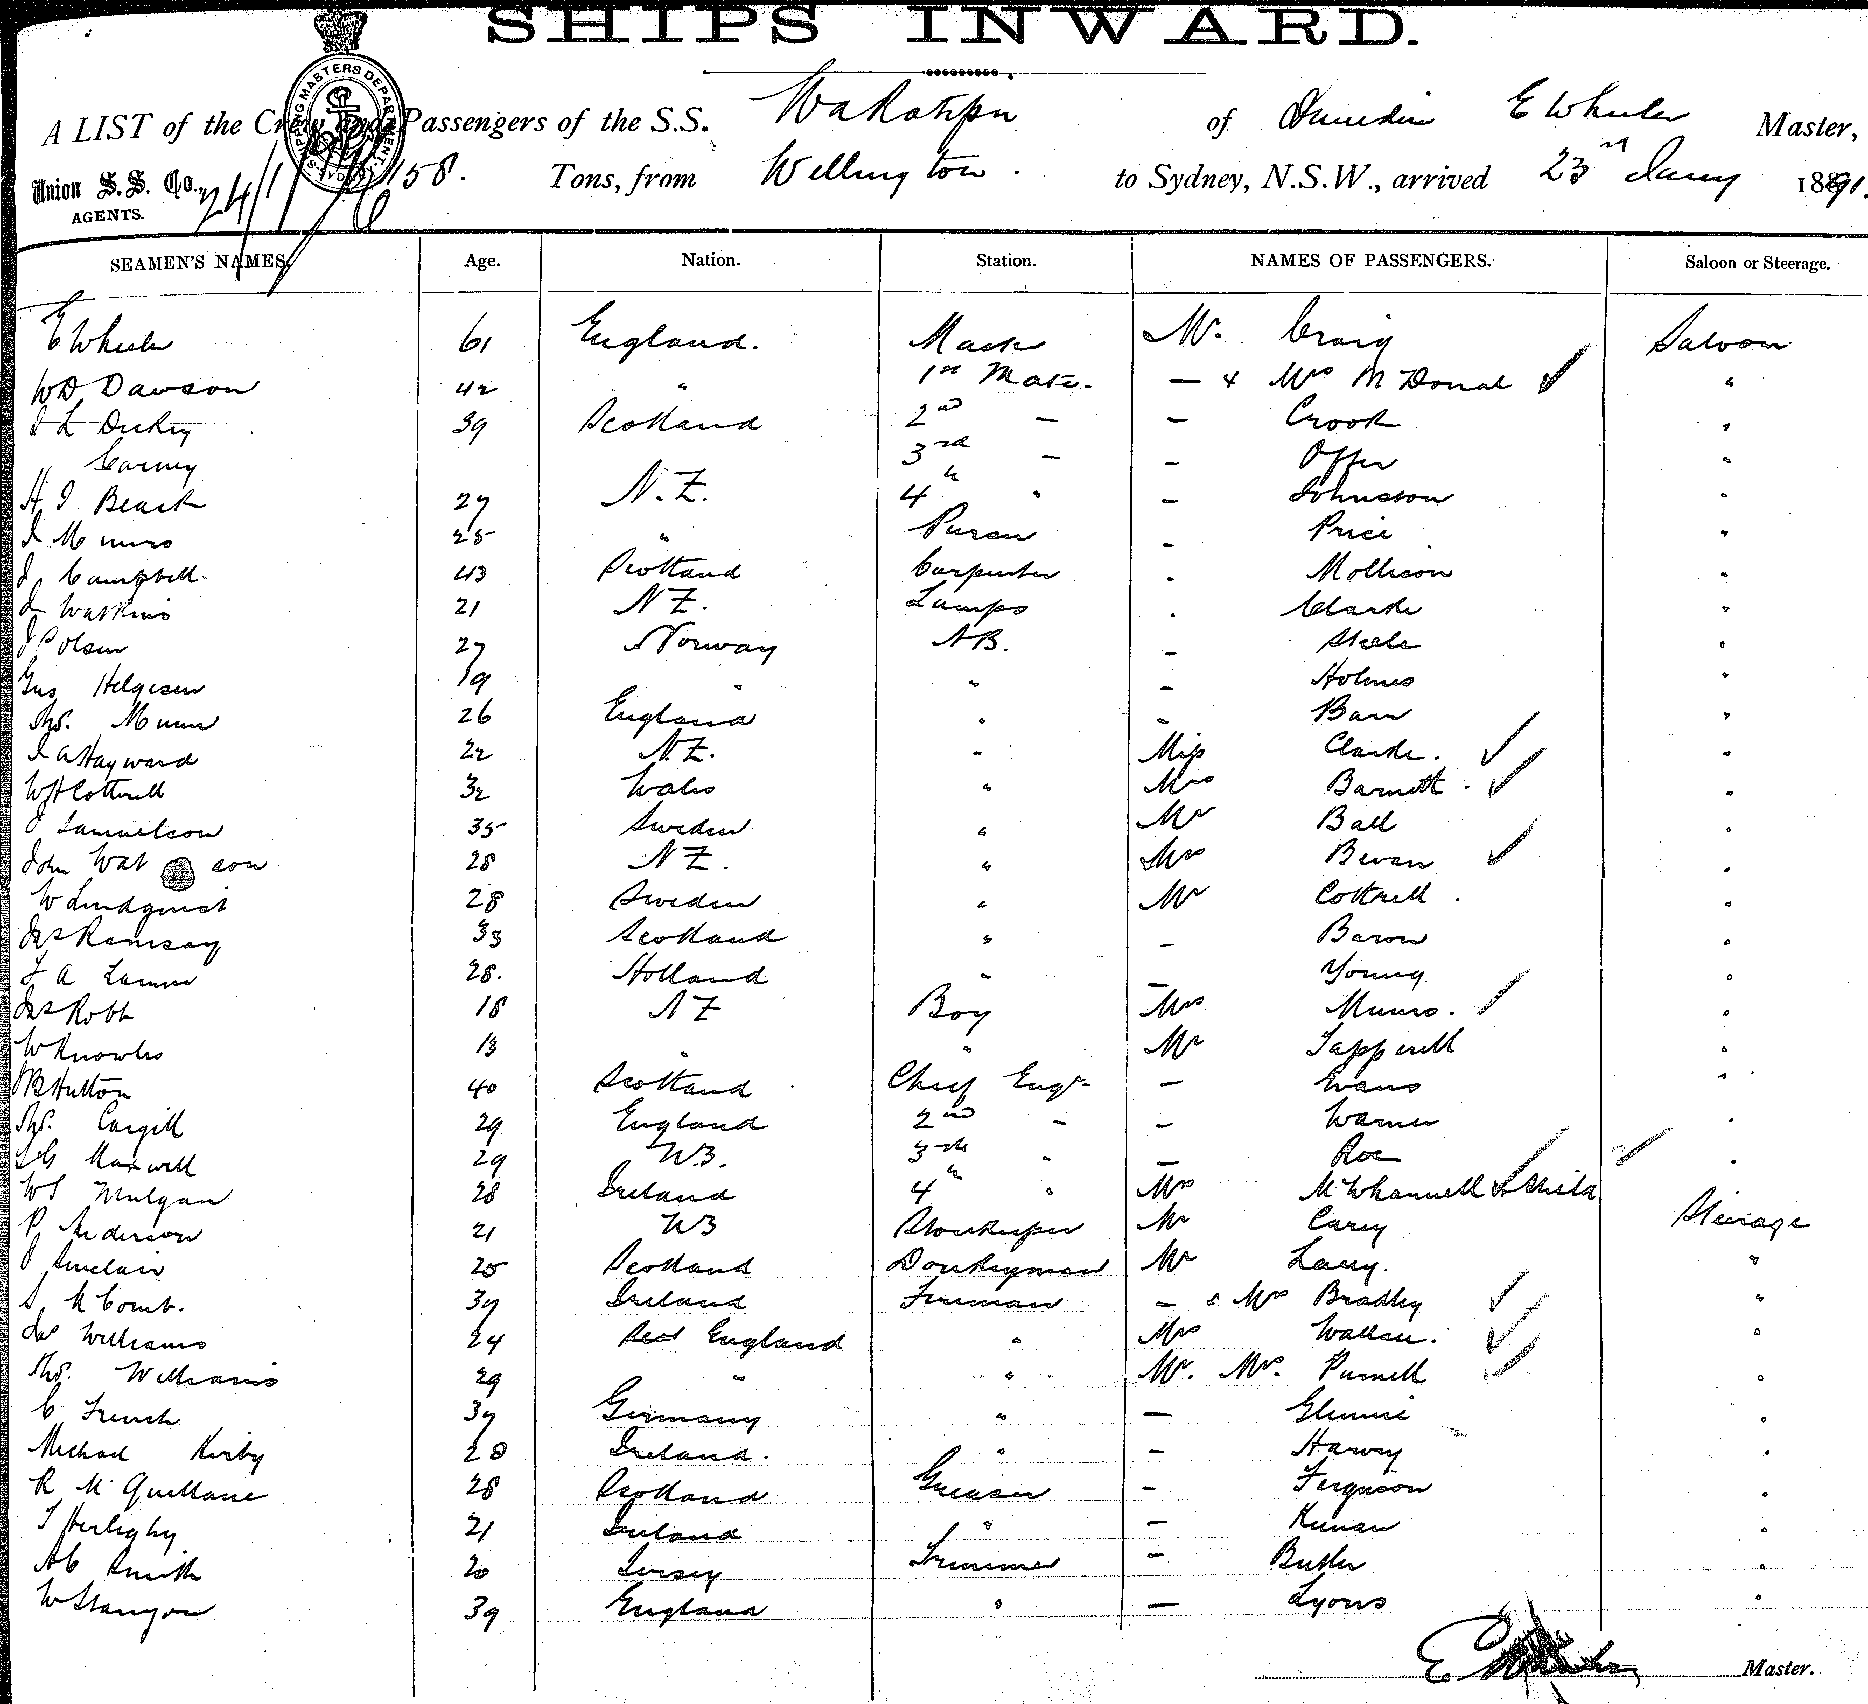 SHIPS INWARD.
A LIST of the Crew and Passengers of the S.S. Wakatipu of Dunedin E Wheeler Master,
Union S. S. Co., 24/1/ 158. Tons, from Wellington. to Sydney, N.S.W., arrived 23rd Jany 1891.
AGENTS.
SHIPPING MASTERS DEPARTMENT
SEAMEN'S NAMES. Age. Nation. Station. NAMES OF PASSENGERS. Saloon or Steerage.
E Wheeler 61 England. Master Mr. Craig Saloon
WD Dawson 42 " 1st Mate. — & Mrs McDonal ✓ "
39 Scotland 2nd — — Crook "
Carney 3rd — — Offer "
H J 27 N.Z. 4th " — Johnston "
J Munro 25 " — Price "
J Campbell. 43 Scotland Carpenter " Mollison "
J Watkins 21 NZ. Lamps " Clarke "
J P Olsen 27 Norway AB. — Steele "
Gus Helgesen 19 " " — Holmes "
Thos. Munn 26 England " — Barr "
J A Hayward 22 N.Z. " Miss Clarke. ✓ "
WH Cottrell 32 Wales " Mrs Barnett. ✓ "
J Samuelson 35 Sweden " Mr Ball "
John Wat son 28 NZ. " Mrs Bevan ✓ "
W Lindquist 28 Sweden " Mr Cottrell. "
Jas Ramsay 33 Scotland " — Baron "
28. Holland " — Young "
Jas Robb 18 NZ Boy Mrs Munro. ✓ "
W Knowles 13 " " Mr Tapperell "
Hutton 40 Scotland Chief Engr — Evans "
Thos. Cargill 29 England 2nd — — Warner "
Maxwell 29 NZ. 3rd " — Roe ✓ "
WS Mulgan 28 Ireland 4th " Mrs McWhannell & Child
P Anderson 21 NZ Storekeeper Mr Carey Steerage
J Sinclair 25 Scotland Donkeyman Mr Lacey. "
S McComb. 37 Ireland Fireman — & Mrs Bradley ✓ "
Jas Williams 24 Scot England " Mrs Wallace. ✓ "
Thos. Williams 29 " " Mr. Mrs. Purnell ✓ "
C French 37 Germany " — Glennie "
Michael Kirby 28 Ireland. " — Harvey "
R McQuillane 28 Scotland Greaser — Ferguson "
T Herlighy 21 Ireland " — Keenan "
AC Smith 20 Jersey Trimmer — Butler "
W Stanyon 39 England " — Lyons "
E Wheeler Master.